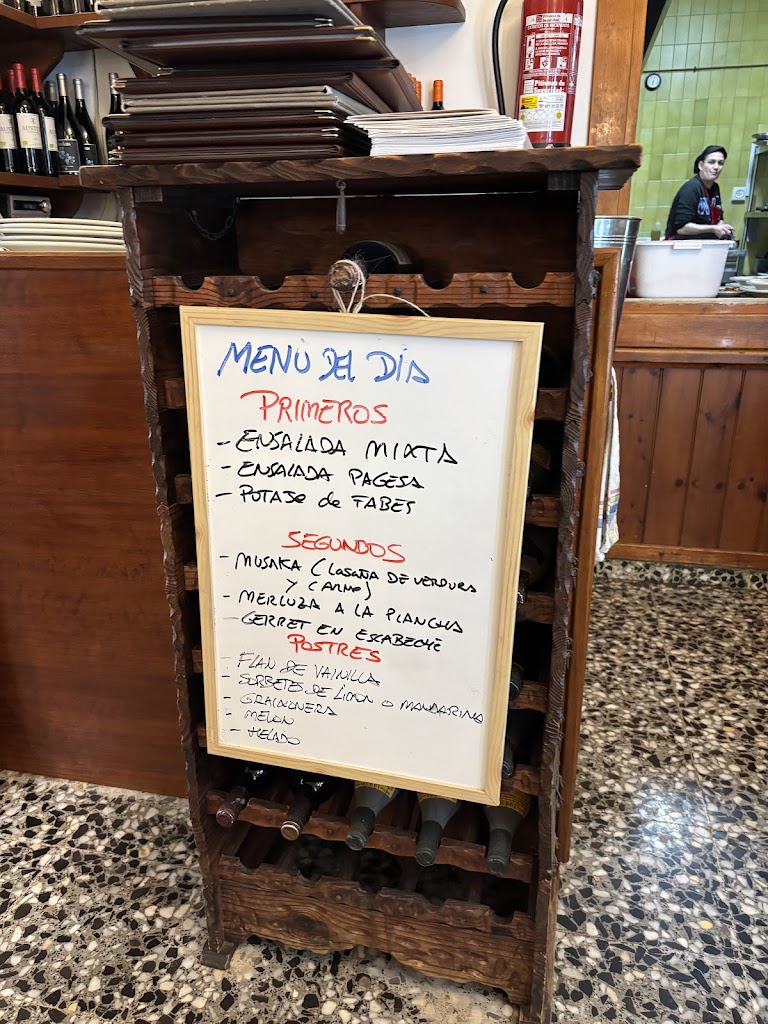 MENÚ DEL DÍA
PRIMEROS
- ENSALADA MIXTA
- ENSALADA PAGESA
- POTAJE de FABES
SEGUNDOS
- MUSAKA (LASAÑA DE VERDURA
Y CARNE)
- MERLUZA A LA PLANCHA
- GERRET EN ESCABECHE
POSTRES
- FLAN DE VAINILLA
- SORBETES DE LIMON O MANDARINA
- GRAIXONERA
- MELON
- HELADO